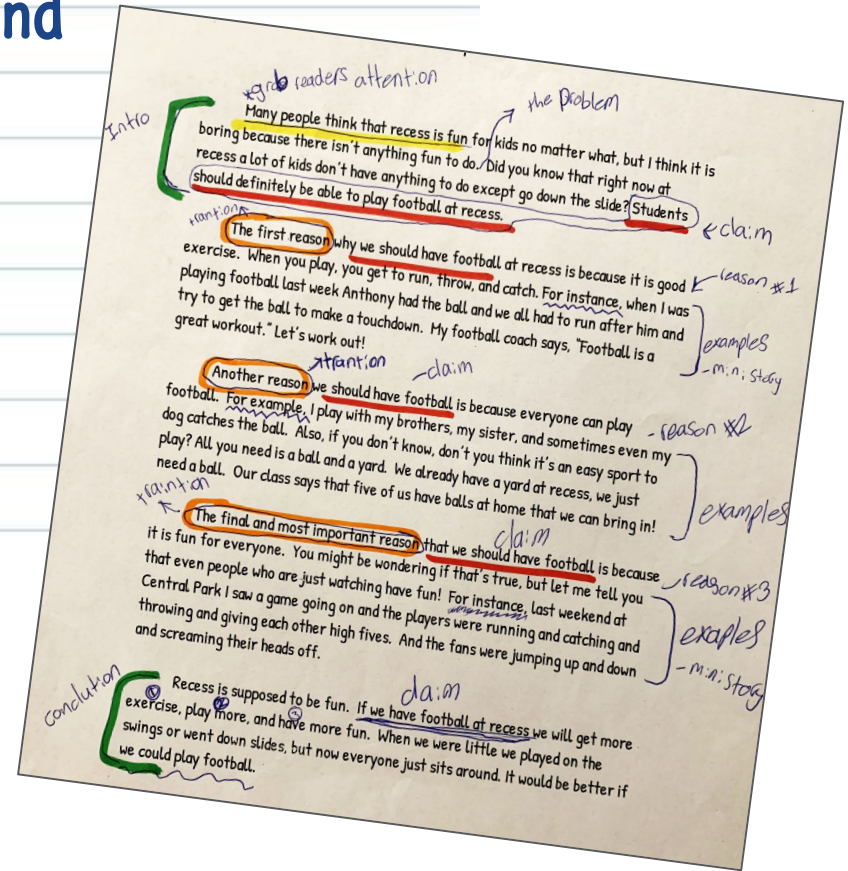 nd
*grab readers attention
the problem
Intro
Many people think that recess is fun for kids no matter what, but I think it is
boring because there isn't anything fun to do. Did you know that right now at
recess a lot of kids don't have anything to do except go down the slide? Students
should definitely be able to play football at recess.
claim
trantion
The first reason why we should have football at recess is because it is good
reason #1
exercise. When you play, you get to run, throw, and catch. For instance, when I was
playing football last week Anthony had the ball and we all had to run after him and
try to get the ball to make a touchdown. My football coach says, "Football is a
great workout." Let's work out!
examples
-mini story
trantion
-claim
Another reason we should have football is because everyone can play
- reason #2
football. For example, I play with my brothers, my sister, and sometimes even my
dog catches the ball. Also, if you don't know, don't you think it's an easy sport to
play? All you need is a ball and a yard. We already have a yard at recess, we just
need a ball. Our class says that five of us have balls at home that we can bring in!
examples
traintion
claim
The final and most important reason that we should have football is because
reason #3
it is fun for everyone. You might be wondering if that's true, but let me tell you
that even people who are just watching have fun! For instance, last weekend at
Central Park I saw a game going on and the players were running and catching and
throwing and giving each other high fives. And the fans were jumping up and down
and screaming their heads off.
exaples
- mini story
conclution
claim
Recess is supposed to be fun. If we have football at recess we will get more
1 2 3
exercise, play more, and have more fun. When we were little we played on the
swings or went down slides, but now everyone just sits around. It would be better if
we could play football.